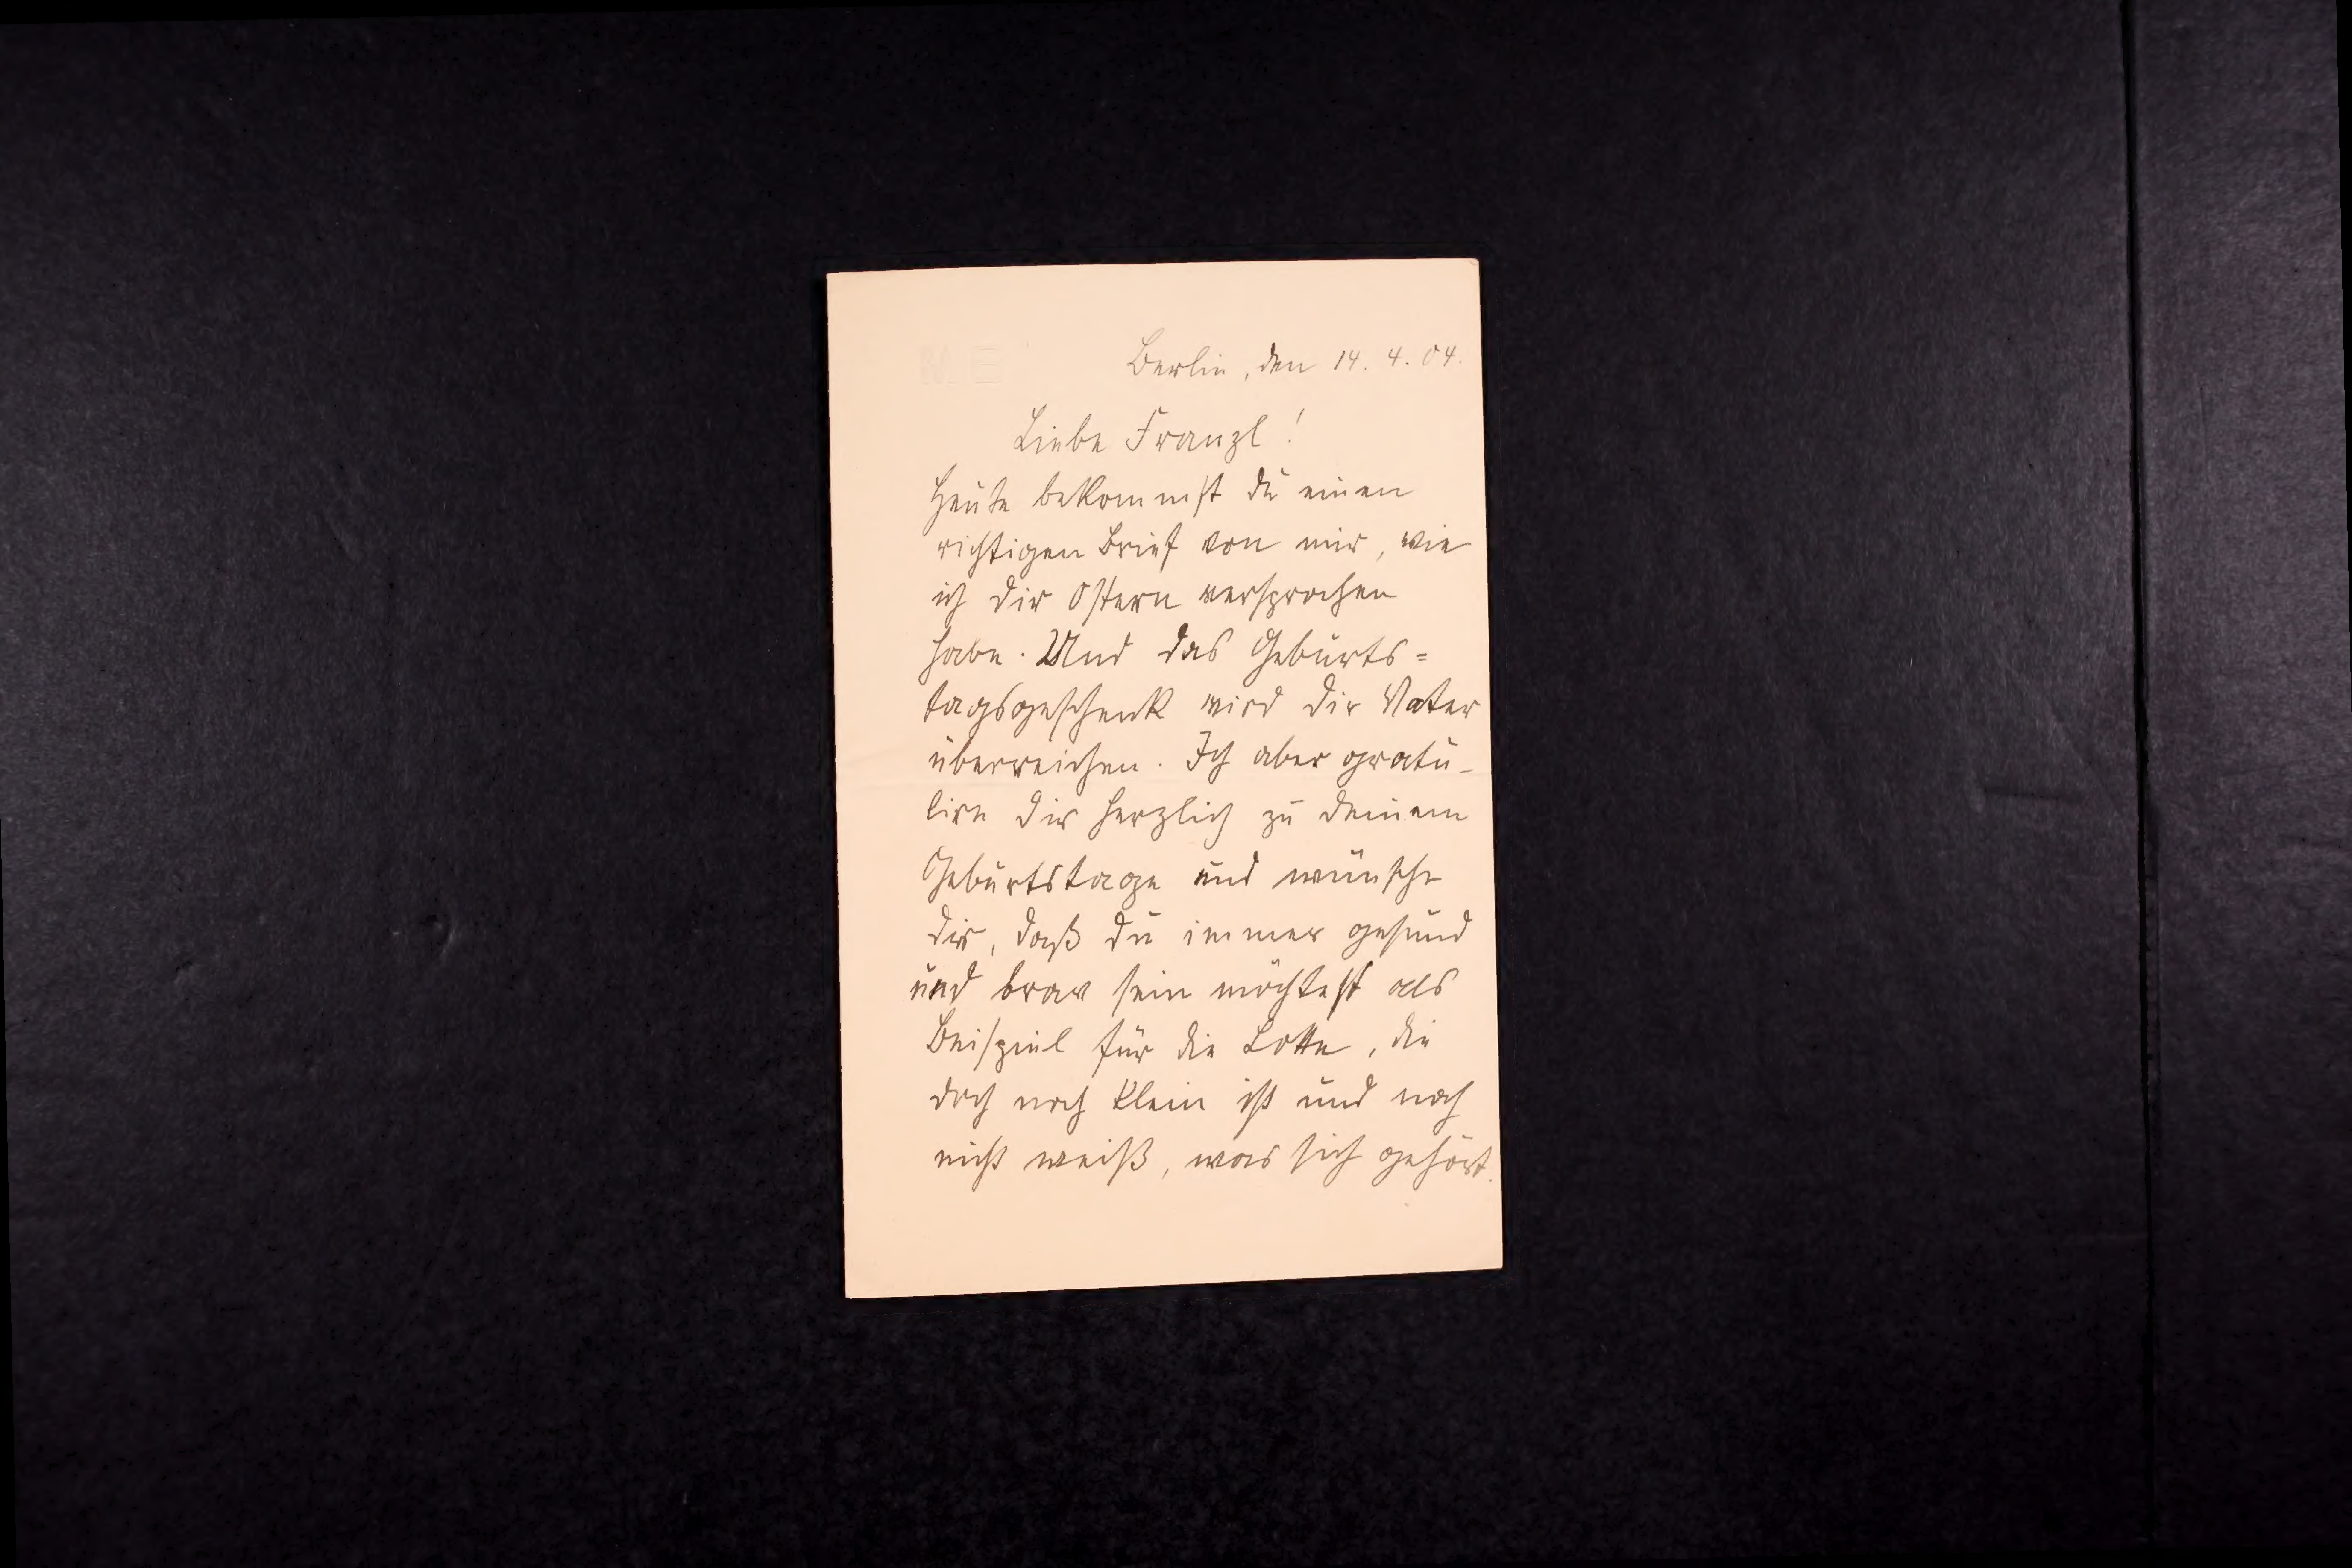 Berlin, den 14. 4. 04.
Liebe Franzl!
Heute bekommst du einen
richtigen Brief von mir, wie
ich dir Ostern versprochen
habe. Und das Geburts=
tagsgeschenk wird dir Vater
überreichen. Ich aber gratu-
lire dir herzlich zu deinem
Geburtstage und wünsche
dir, daß du immer gesund
und brav sein möchtest als
Beispiel für die Lotte, die
doch noch klein ist und noch
nicht weiß, was sich gehört.